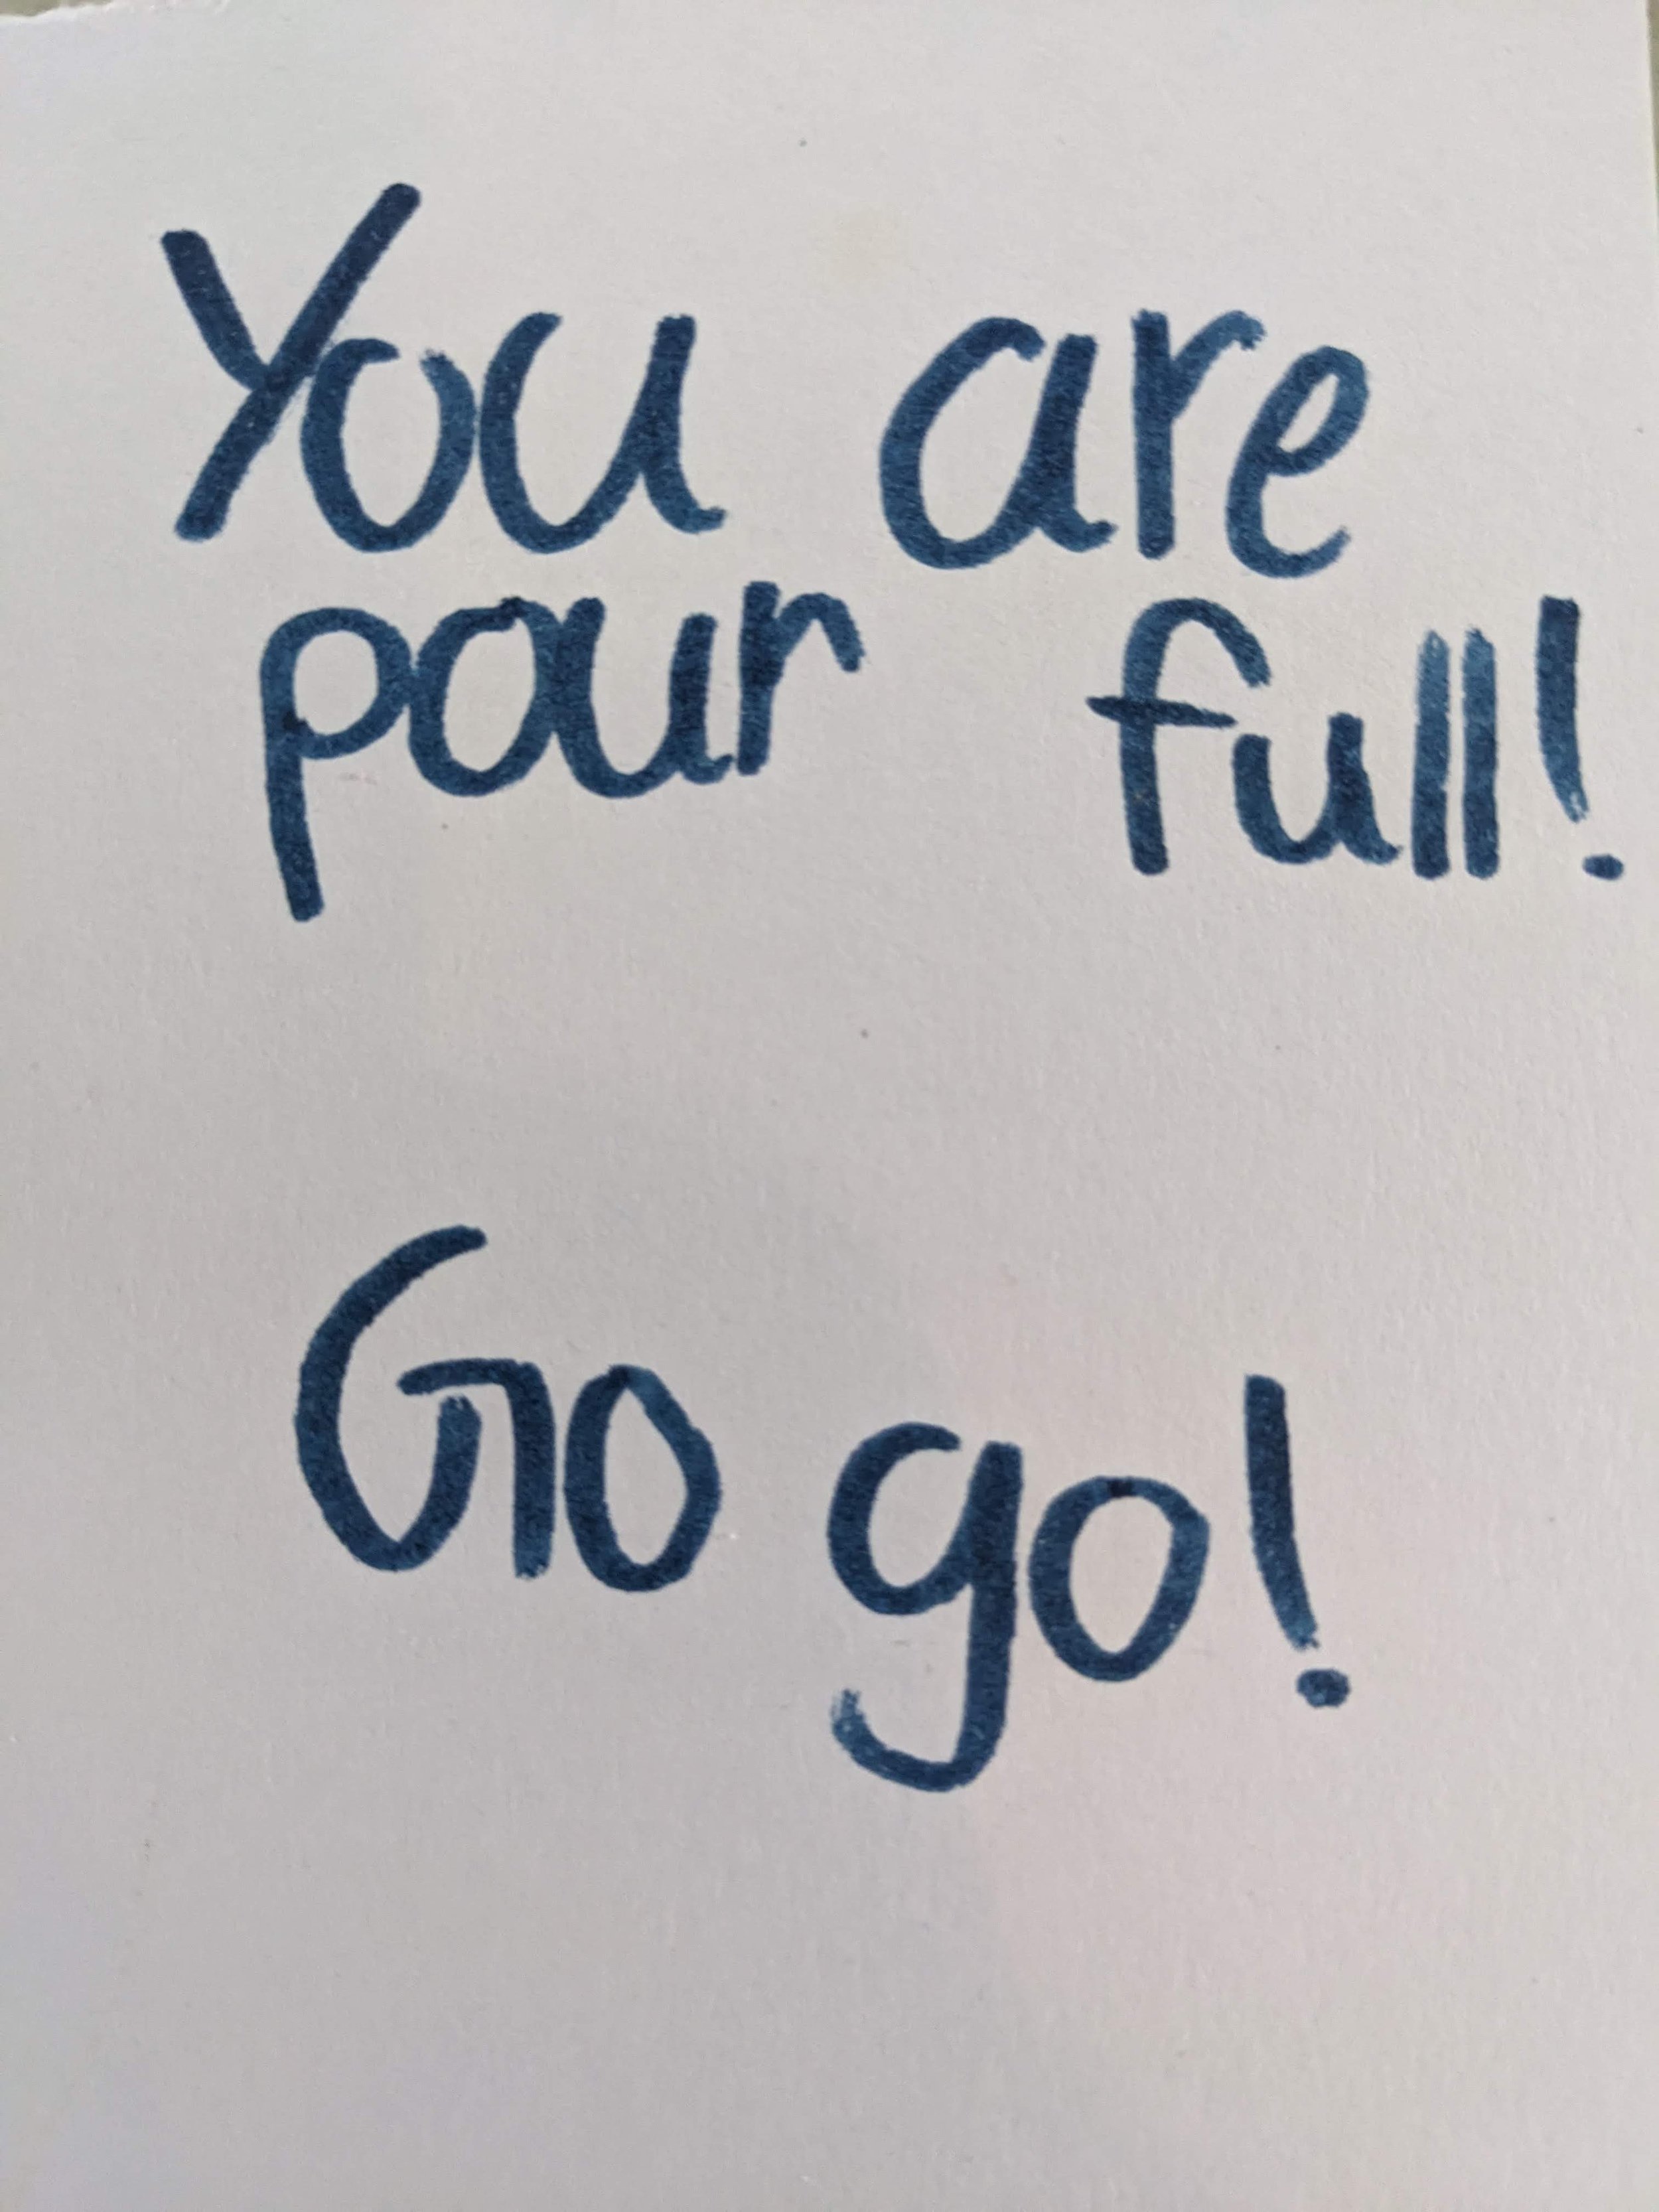 You are
pour full!
Go go!